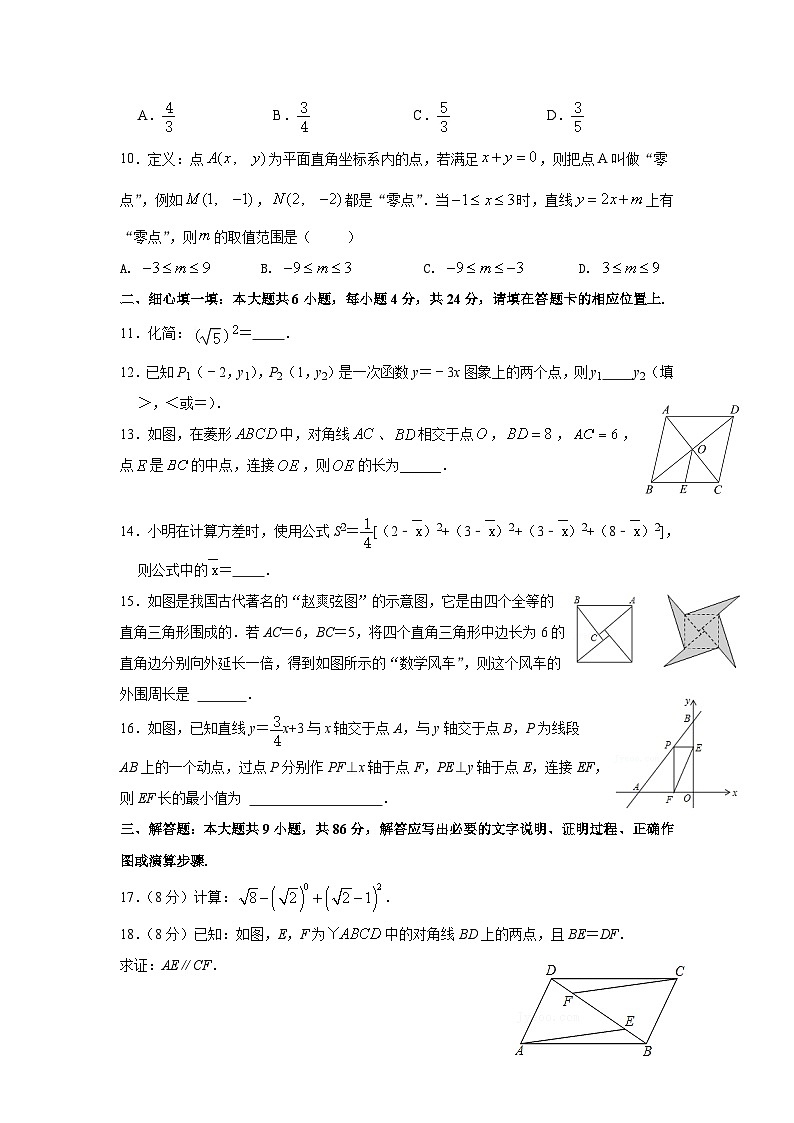 A.4/3 B.3/4 C.5/3 D.3/5
10.定义:点A(x, y)为平面直角坐标系内的点,若满足x+y=0,则把点A叫做“零
点”,例如M(1, -1),N(2, -2)都是“零点”.当-1≤x≤3时,直线y=2x+m上有
“零点”,则m的取值范围是( )
A. -3≤m≤9 B. -9≤m≤3 C. -9≤m≤-3 D. 3≤m≤9
二、细心填一填:本大题共6小题,每小题4分,共24分,请填在答题卡的相应位置上.
11.化简:(√5)²=____.
12.已知P₁(﹣2,y₁),P₂(1,y₂)是一次函数y=﹣3x图象上的两个点,则y₁____y₂(填
>,<或=).
13.如图,在菱形ABCD中,对角线、BD相交于点O,BD=8,AC=6,
点E是BC的中点,连接OE,则OE的长为_____.
A D
O
B E C
14.小明在计算方差时,使用公式S²=1/4[(2﹣x̅)²+(3﹣x̅)²+(3﹣x̅)²+(8﹣x̅)²],
则公式中的x̅=____.
15.如图是我国古代著名的“赵爽弦图”的示意图,它是由四个全等的
直角三角形围成的.若AC=6,BC=5,将四个直角三角形中边长为6的
直角边分别向外延长一倍,得到如图所示的“数学风车”,则这个风车的
外围周长是 ______.
B A
C
16.如图,已知直线y=3/4x+3与x轴交于点A,与y轴交于点B,P为线段
AB上的一个动点,过点P分别作PF⊥x轴于点F,PE⊥y轴于点E,连接EF,
则EF长的最小值为 ________________.
y
B
P E
A F O x
三、解答题:本大题共9小题,共86分,解答应写出必要的文字说明、证明过程、正确作
图或演算步骤.
17.(8分)计算:√8-(√2)⁰+(√2-1)².
18.(8分)已知:如图,E,F为YABCD中的对角线BD上的两点,且BE=DF.
求证:AE∥CF.
D C
F
E
A B